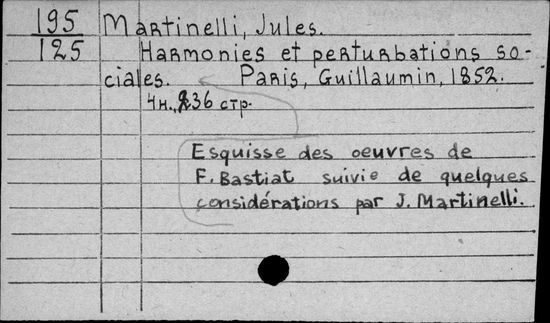 195
125
Martinelli, Jules.
Harmonies et perturbations so-
ciales. Paris, Guillaumin, 1852.
4н., 236 стр.
Esquisse des oeuvres de
F. Bastiat suivie de quelques
considérations par J. Martinelli.